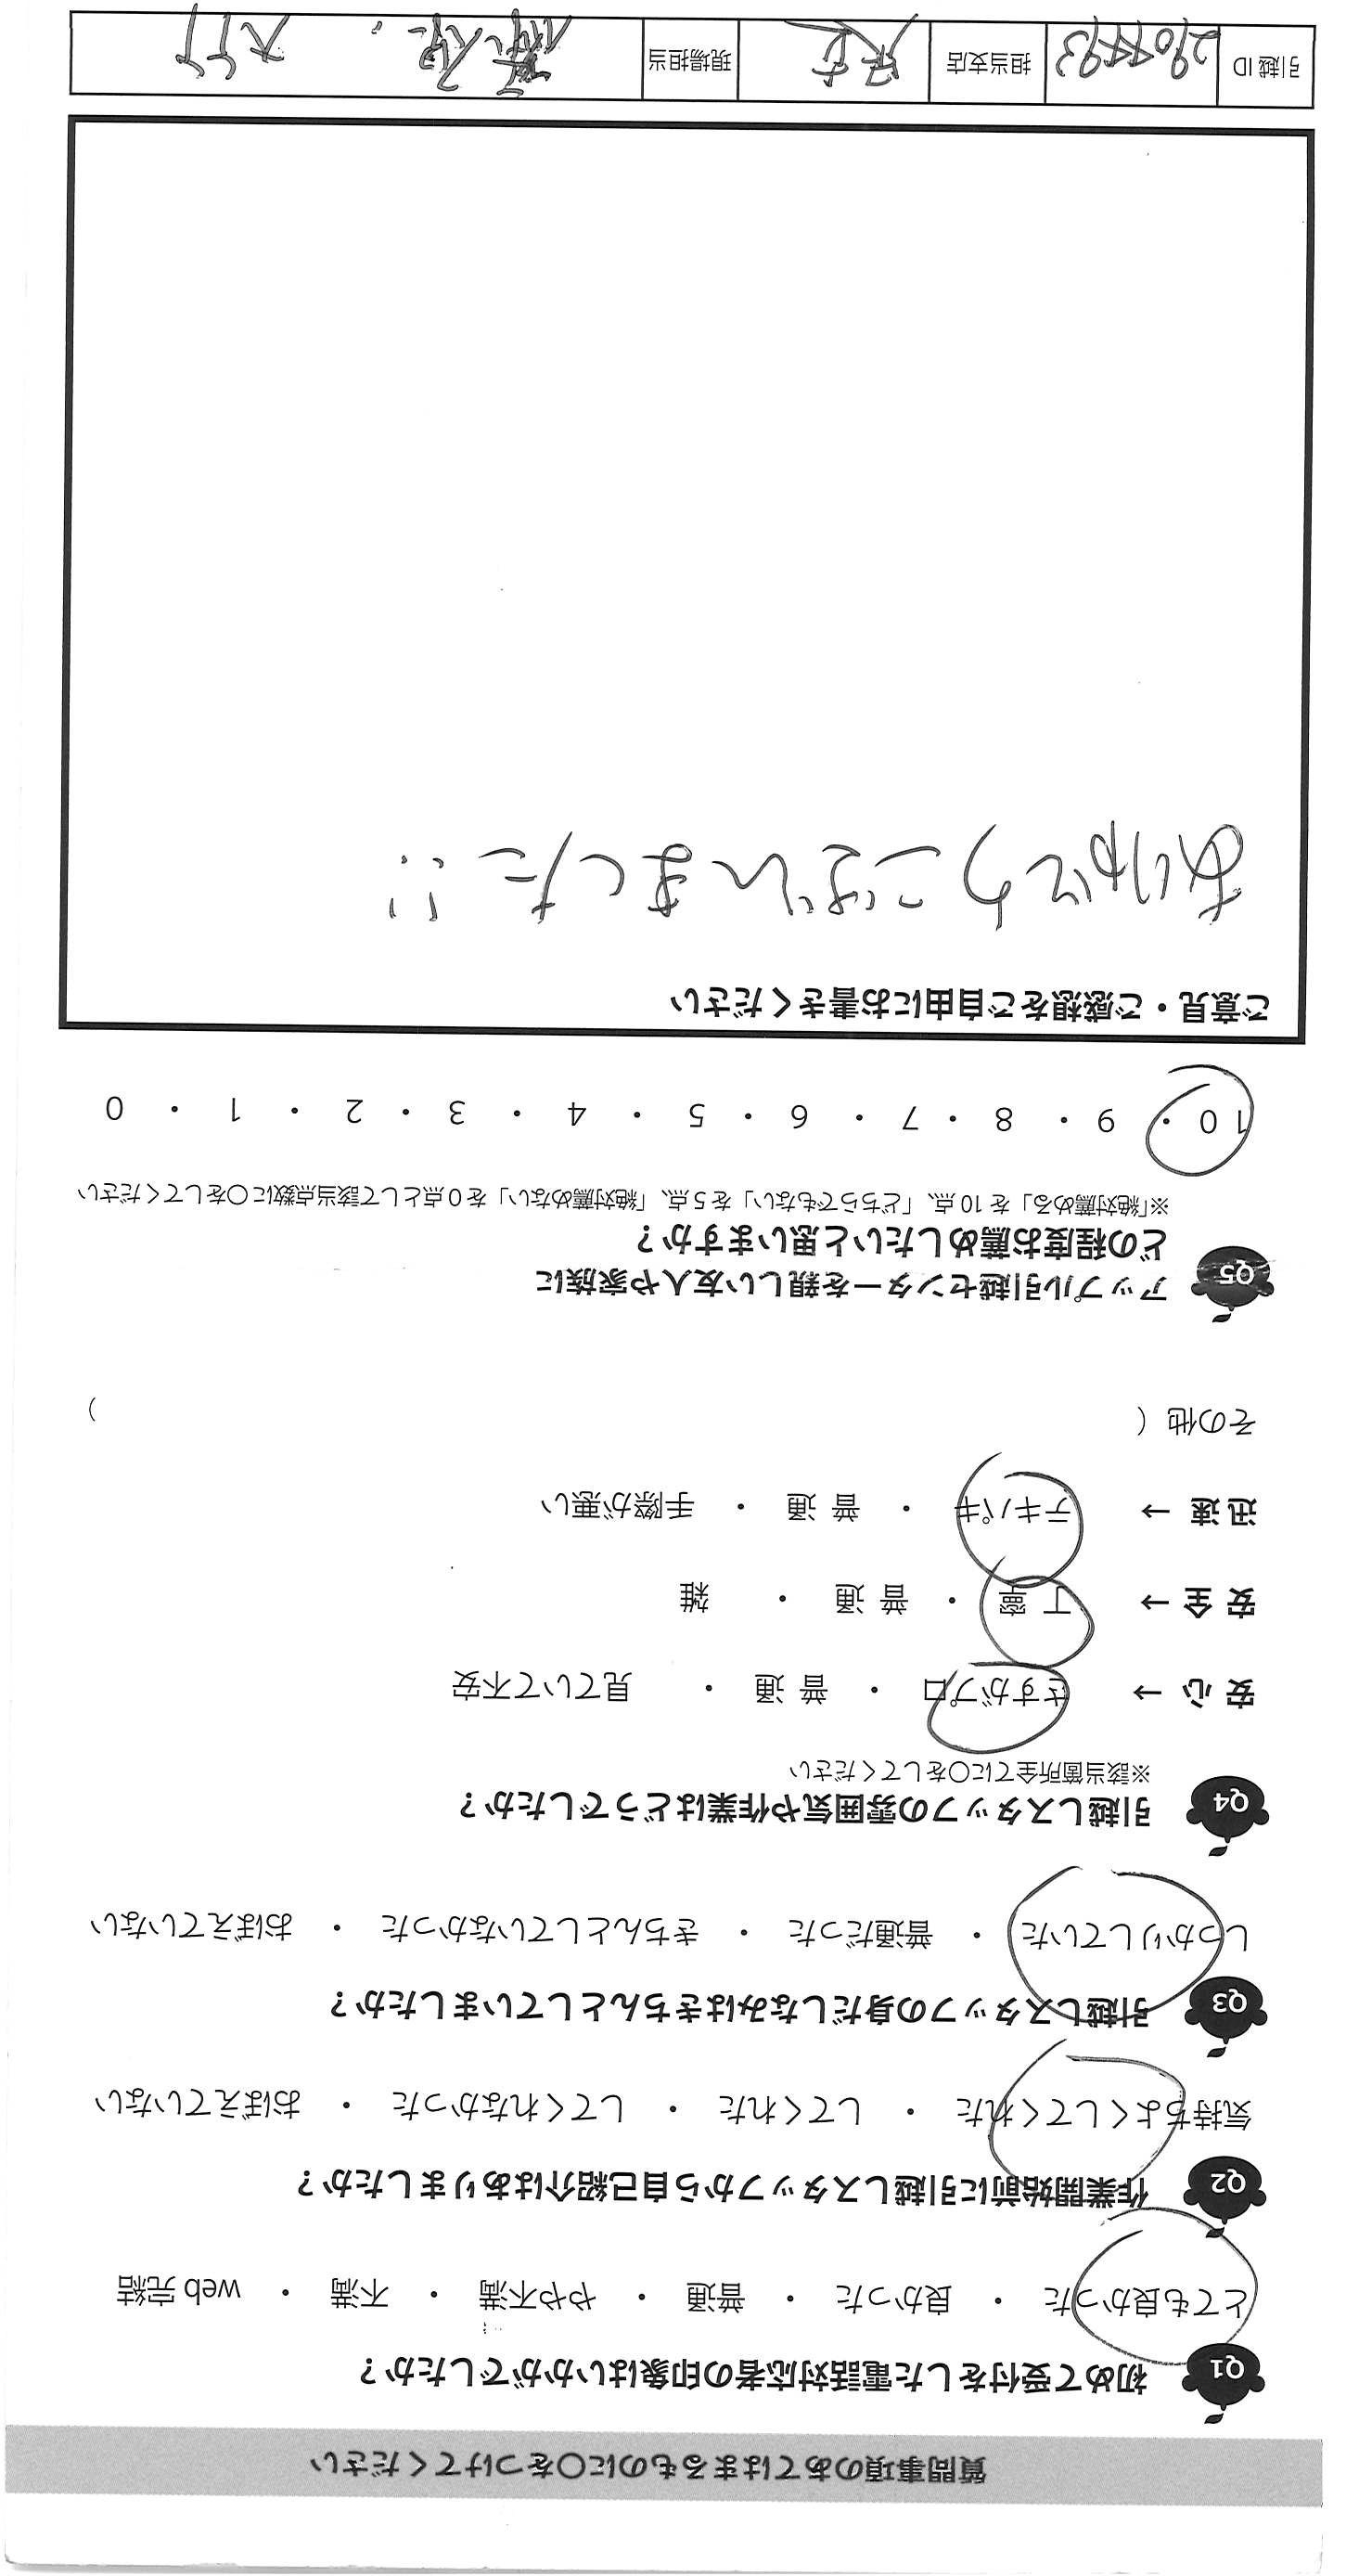 質問事項のあてはまるものに〇をつけてください
Q1 初めて受付をした電話対応者の印象はいかがでしたか？
とても良かった ・ 良かった ・ 普通 ・ やや不満 ・ 不満 ・ web 完結
Q2 作業開始前に引越しスタッフから自己紹介はありましたか？
気持ちよくしてくれた ・ してくれた ・ してくれなかった ・ おぼえていない
Q3 引越しスタッフの身だしなみはきちんとしていましたか？
しっかりしていた ・ 普通だった ・ きちんとしていなかった ・ おぼえていない
Q4 引越しスタッフの雰囲気や作業はどうでしたか？
※該当箇所全てに〇をしてください
安 心 → さすがプロ ・ 普 通 ・ 見ていて不安
安 全 → 丁 寧 ・ 普 通 ・ 雑
迅 速 → テキパキ ・ 普 通 ・ 手際が悪い
その他（ ）
Q5 アップル引越センターを親しい友人や家族に
どの程度お薦めしたいと思いますか？
※「絶対薦める」を 10 点、「どちらでもない」を 5 点、「絶対薦めない」を 0 点として該当点数に〇をしてください
10 ・ 9 ・ 8 ・ 7 ・ 6 ・ 5 ・ 4 ・ 3 ・ 2 ・ 1 ・ 0
ご意見・ご感想をご自由にお書きください
ありがとうございました!!
引越 ID 2904493 担当支店 現場担当